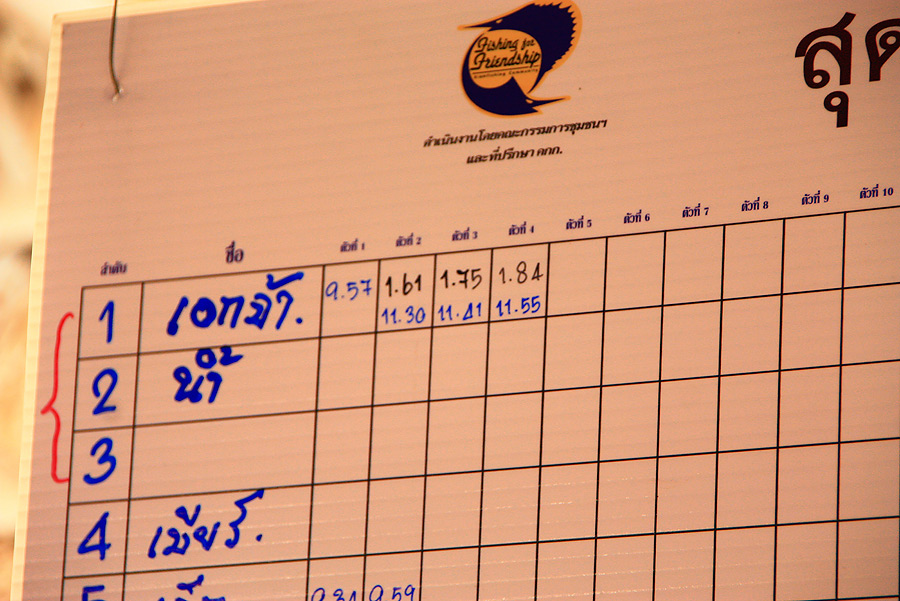 Fishing for
Friendship
สุด
ดำเนินงานโดยคณะกรรมการชุมชนฯ
และที่ปรึกษา คกก.
ลำดับ ชื่อ ตัวที่ 1 ตัวที่ 2 ตัวที่ 3 ตัวที่ 4 ตัวที่ 5 ตัวที่ 6 ตัวที่ 7 ตัวที่ 8 ตัวที่ 9 ตัวที่ 10
1 เอกจ้า. 9.57 1.61 1.75 1.84
11.30 11.41 11.55
2 น้ำ
3
4 เบียร์.
5 9.31 9.59